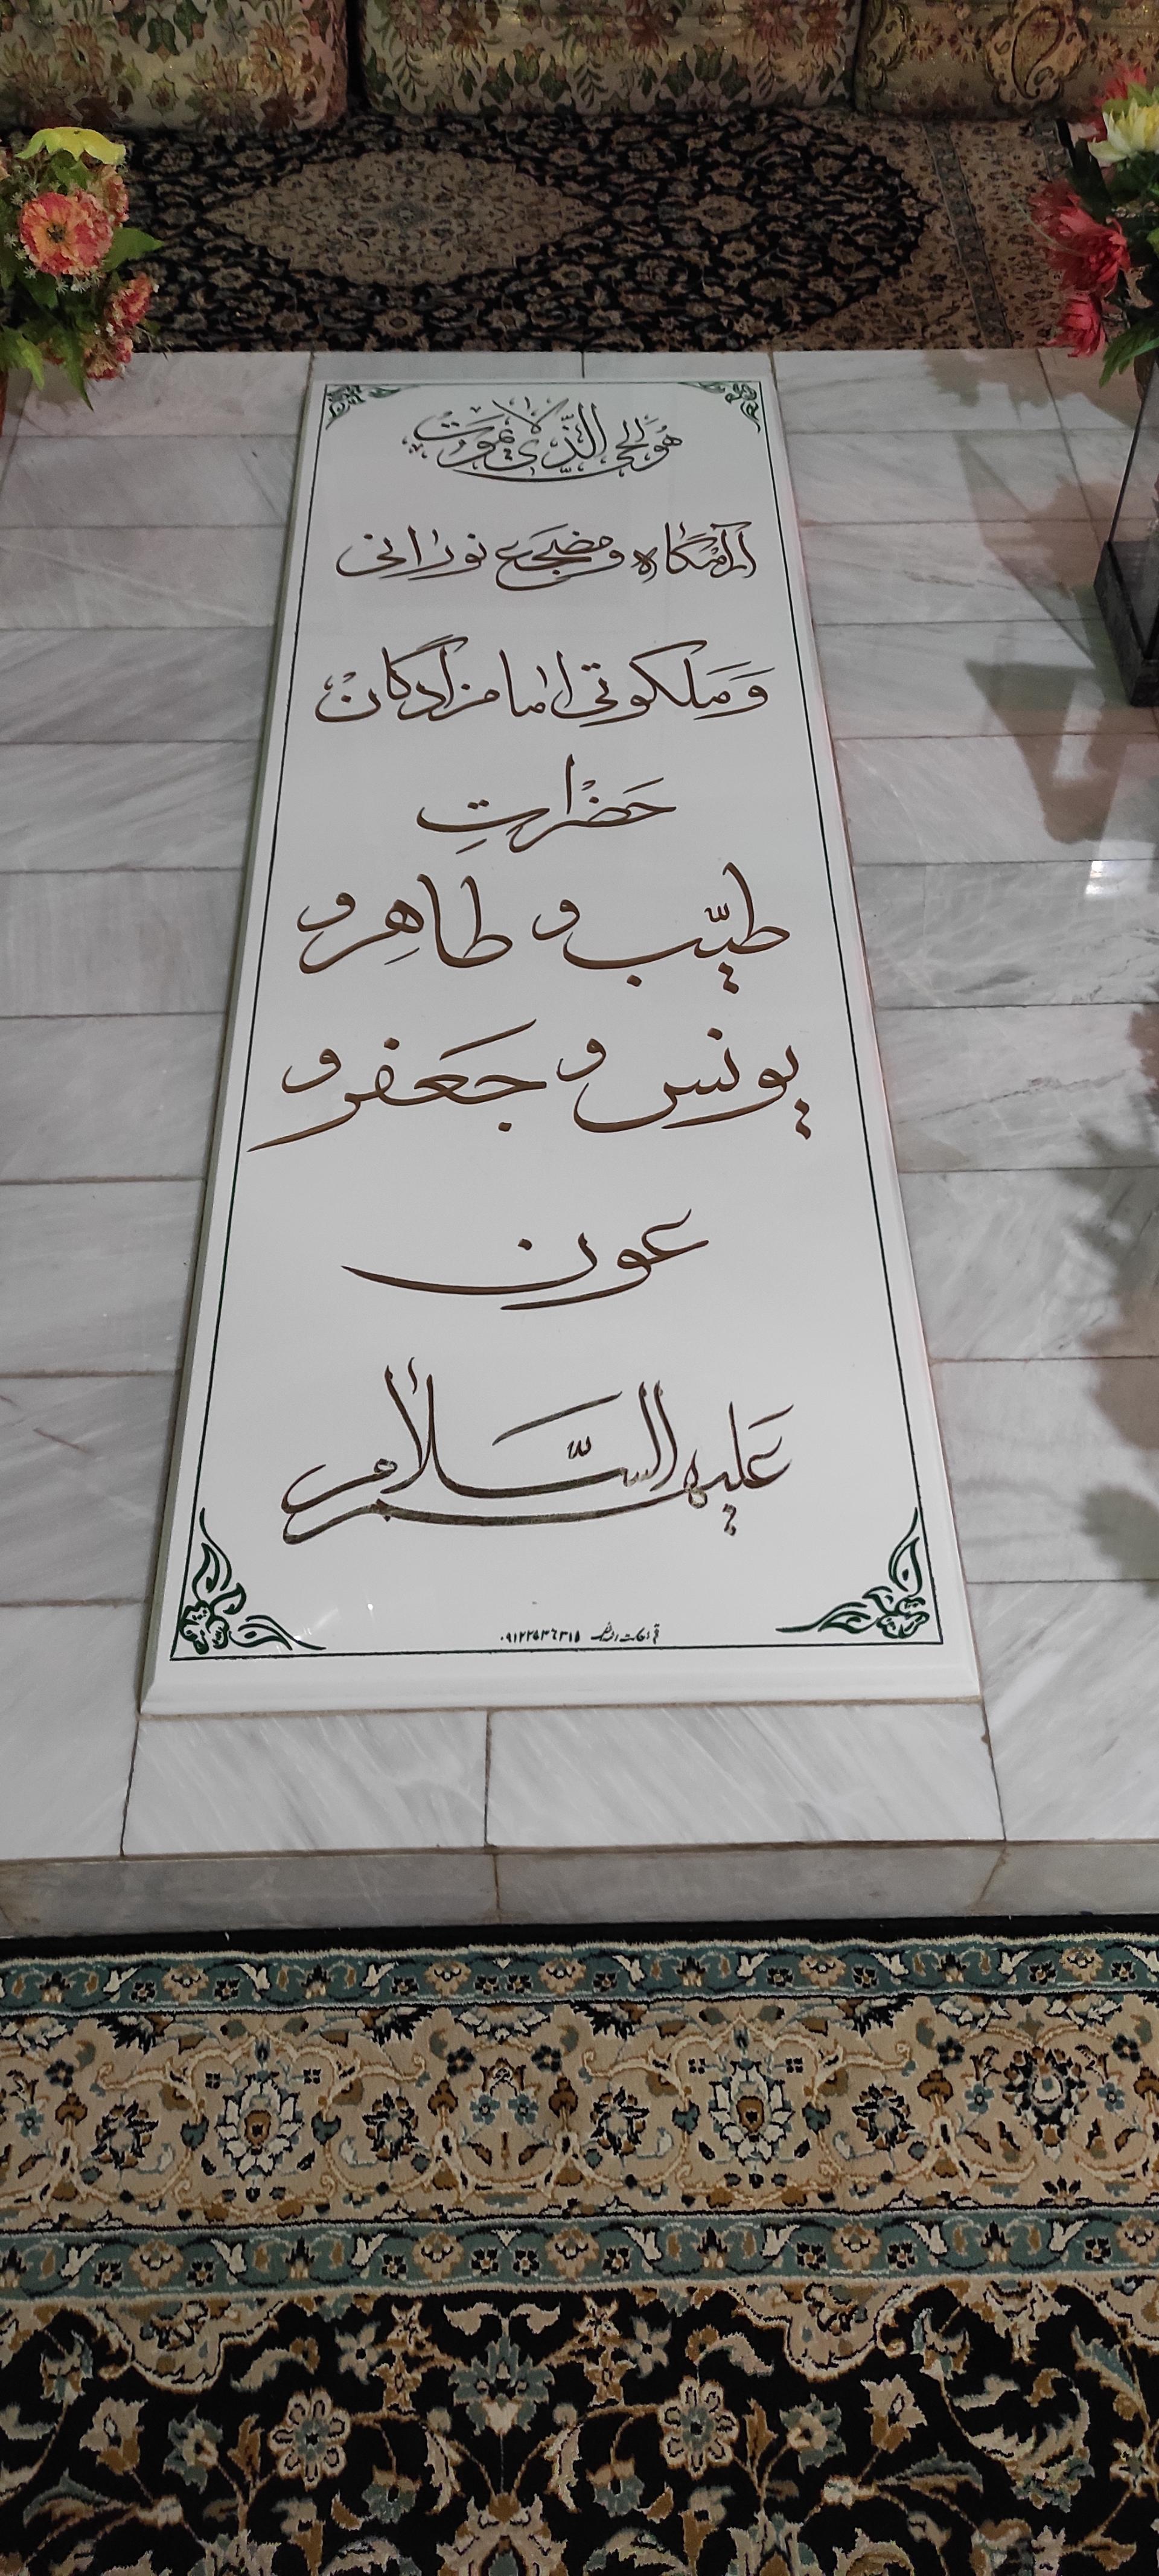 هُوَ الحَیُّ الَّذی لا یَمُوت
آرامگاه و مضجع نورانی
وَ مَلکوتی امامزادگان
حَضَراتِ
طیّب و طاهِر و
یونس و جَعفر و
عون
عَلیهم السَّلام
۰۹۱۲۲۵۳۶۳۱۵